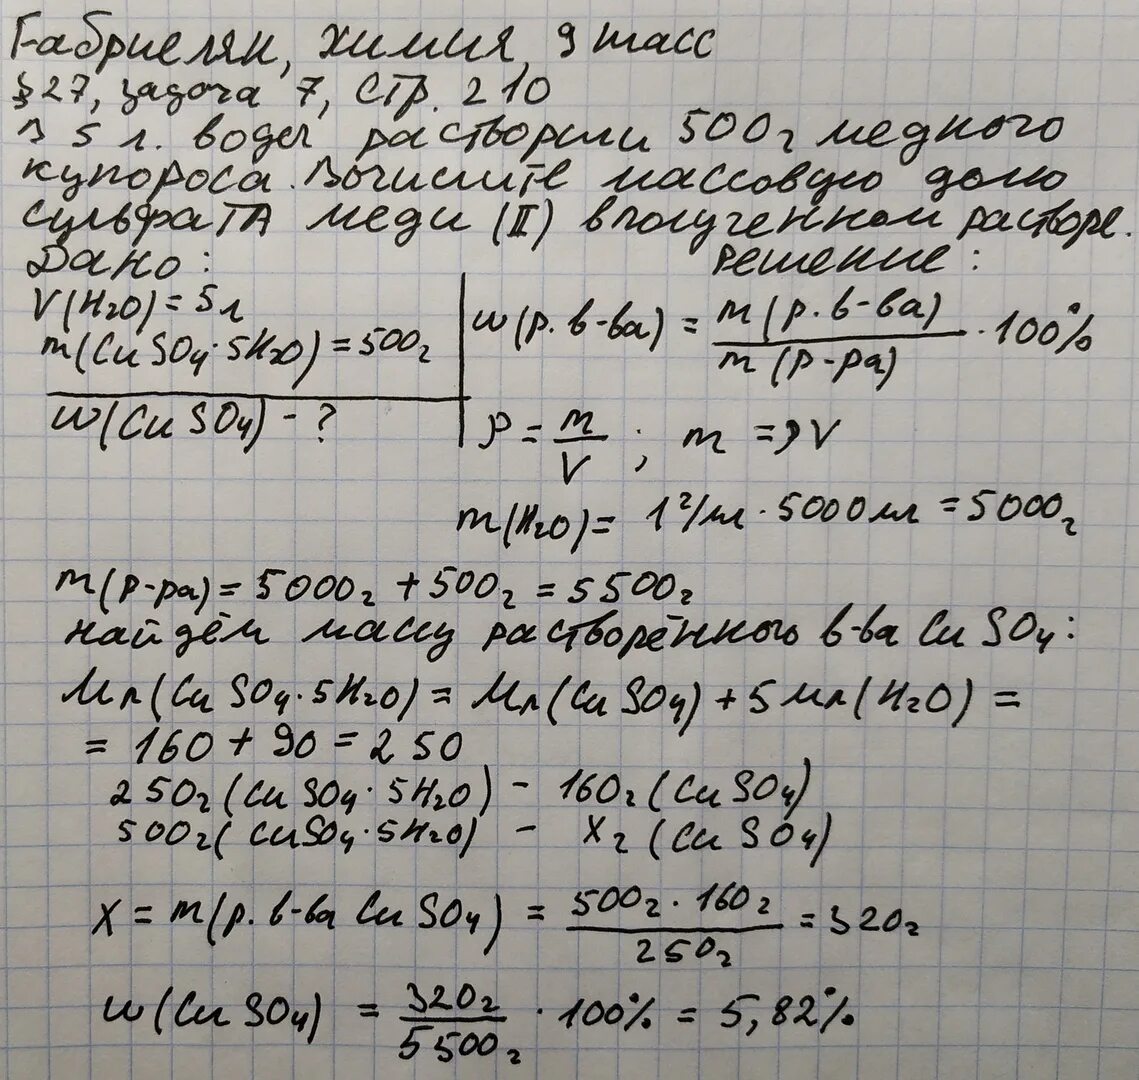 Габриелян, химия, 9 класс
§27, задача 7, стр. 210
В 5 л. воды растворили 500г медного
купороса. Вычислите массовую долю
сульфата меди (II) в полученном растворе.
Дано: Решение:
V(H₂O) = 5л
m(CuSO₄·5H₂O) = 500г
w(CuSO₄) - ?
w(р.в-ва) = m(р.в-ва) / m(р-ра) · 100%
ρ = m / V ; m = ρV
m(H₂O) = 1 г/мл · 5000мл = 5000г
m(р-ра) = 5000г + 500г = 5500г
найдём массу растворённого в-ва CuSO₄:
Mr(CuSO₄·5H₂O) = Mr(CuSO₄) + 5Mr(H₂O) =
= 160 + 90 = 250
250г(CuSO₄·5H₂O) - 160г(CuSO₄)
500г(CuSO₄·5H₂O) - Xг(CuSO₄)
X = m(р.в-ва CuSO₄) = 500г · 160г / 250г = 320г
w(CuSO₄) = 320г / 5500г · 100% = 5,82%